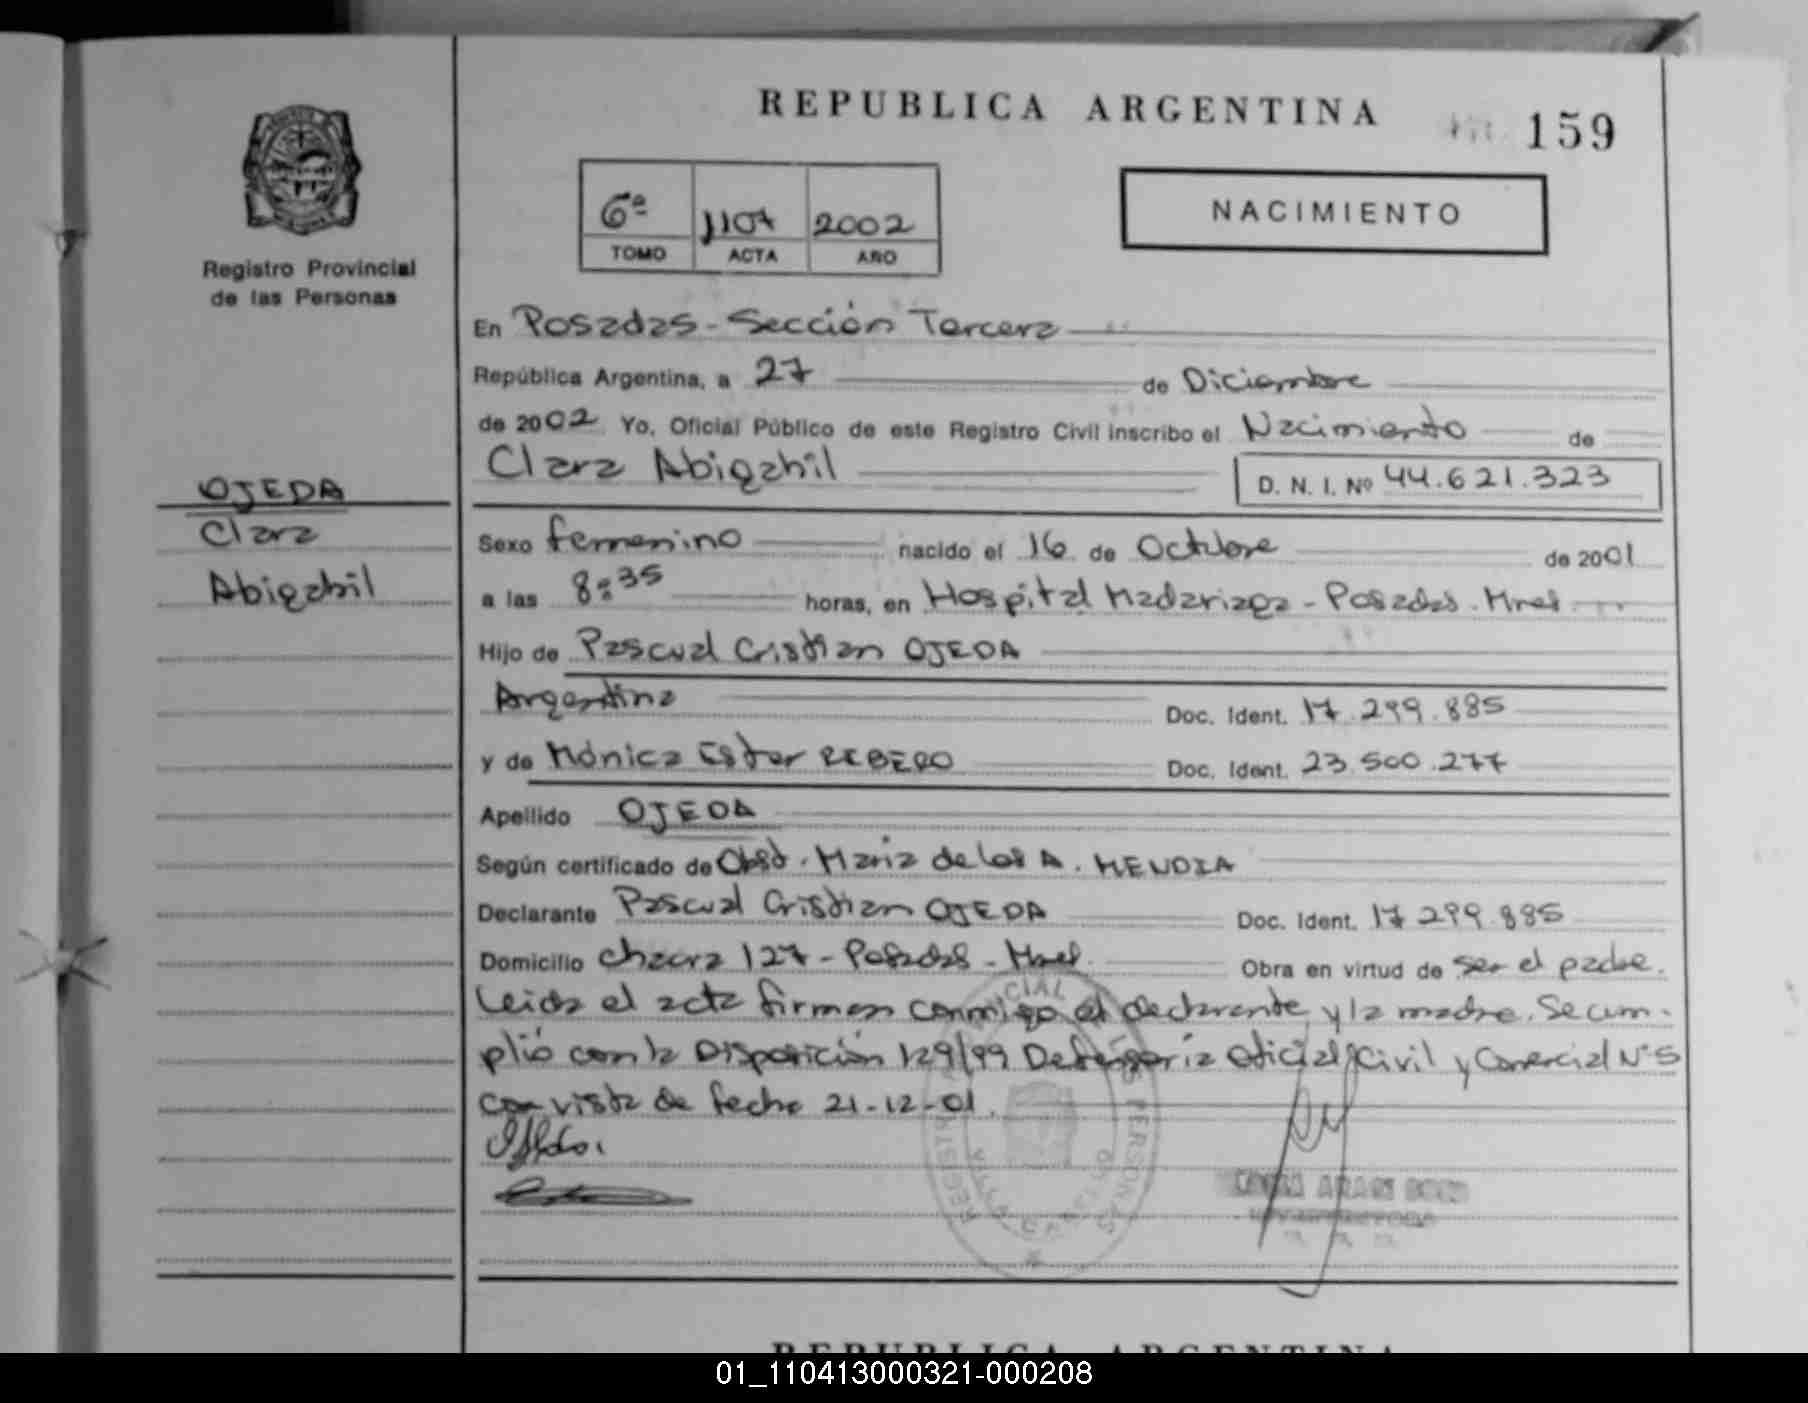 REPUBLICA ARGENTINA
159
6ª 1107 2002
TOMO ACTA AÑO
NACIMIENTO
Registro Provincial
de las Personas
En Posadas - Sección Tercera
República Argentina, a 27 de Diciembre
de 2002 Yo, Oficial Público de este Registro Civil inscribo el Nacimiento de
Clara Abigahil D. N. I. Nº 44.621.323
OJEDA
Clara
Abigahil
Sexo femenino nacido el 16 de Octubre de 2001
a las 8:35 horas, en Hospital Madariaga - Posadas - Mnes
Hijo de Pascual Cristian OJEDA
Argentina Doc. Ident. 17.299.885
y de Mónica Ester REBERO Doc. Ident. 23.500.277
Apellido OJEDA
Según certificado de Obst. Maria de los A. MENDIA
Declarante Pascual Cristian OJEDA Doc. Ident. 17 299.885
Domicilio Chacra 127 - Posadas - Mnes. Obra en virtud de ser el padre.
Leida el acta firman conmigo el declarante y la madre. Se cum-
plió con la Disposición 129/99 Defensoría Oficial Civil y Comercial Nº 5
con vista de fecha 21-12-01.
REGISTRO PROVINCIAL DE LAS PERSONAS
REPUBLICA ARGENTINA
01_110413000321-000208